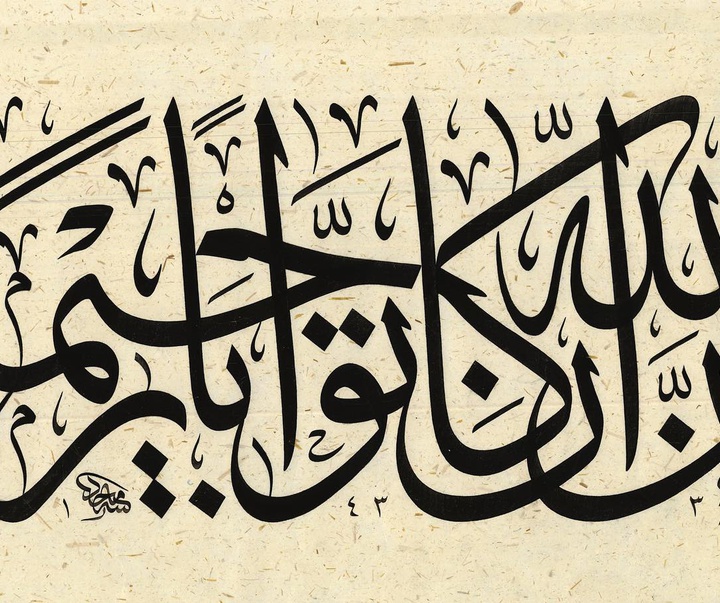 إِنَّ اللَّهَ كَانَ تَوَّابًا رَحِيمًا
١٤٣٣